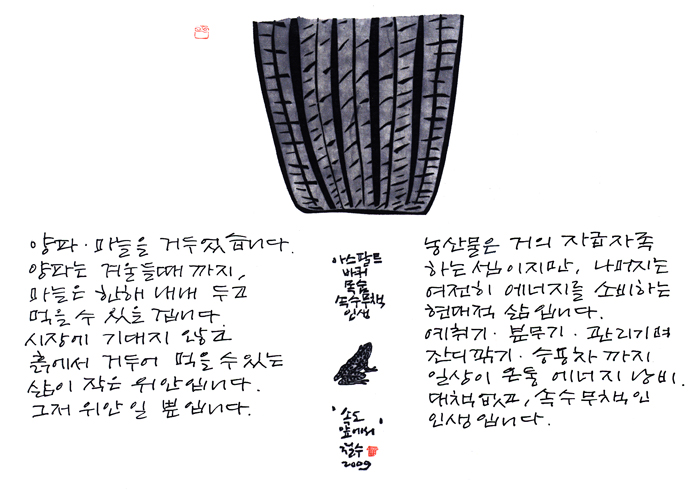 양파·마늘을 거두었습니다.
양파는 겨울들때 까지,
마늘은 한해 내내 두고
먹을 수 있을 겁니다.
시장에 기대지 않고
흙에서 거두어 먹을 수 있는
삶이 작은 위안입니다.
그저 위안 일 뿐입니다.
아스팔트
바퀴
목숨
속수무책
인생
'속도
앞에서'
철수
2009
농산물은 거의 자급자족
하는 셈이지만, 나머지는
여전히 에너지를 소비하는
현대적 삶입니다.
예취기·분무기·관리기며
잔디깎기·승용차 까지
일상이 온통 에너지 낭비.
대책없고, 속수무책인
인생입니다.